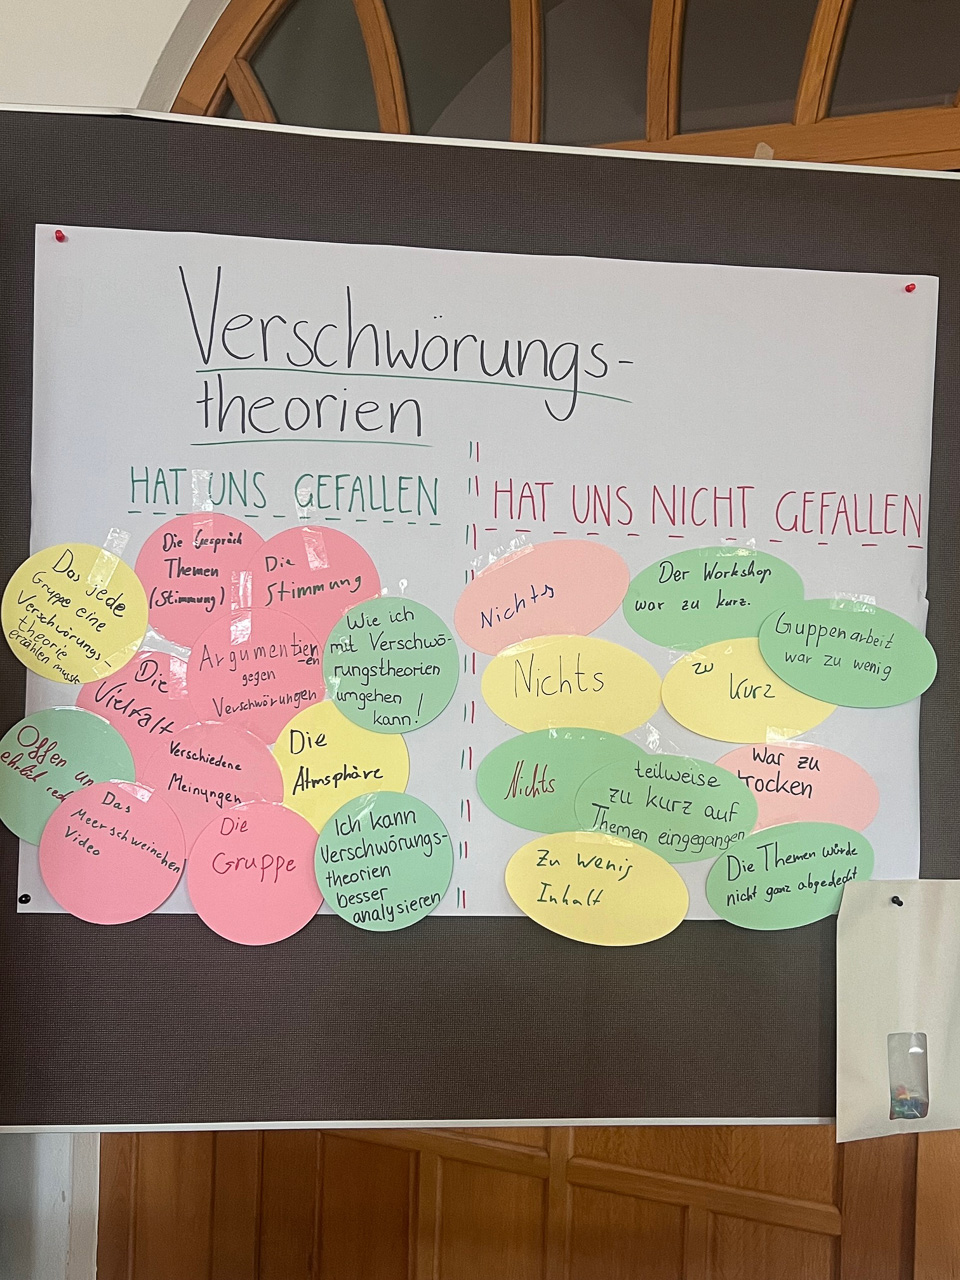 Verschwörungs-
theorien
HAT UNS GEFALLEN
Das jede
Gruppe eine
Verschwörungs-
theorie
erzählen musste
Die Gespräch
Themen
(Stimmung)
Die
Stimmung
Argumentien
-en
gegen
Verschwörungen
Wie ich
mit Verschwö-
rungstheorien
umgehen
kann!
Die
Vielfalt
Offen un
ehrlich red
Verschiedene
Meinungen
Die
Atmsphäre
Das
Meerschweinchen
Video
Die
Gruppe
Ich kann
Verschwörungs-
theorien
besser
analysieren
HAT UNS NICHT GEFALLEN
Nichts
Der Workshop
war zu kurz.
Guppenarbeit
war zu wenig
Nichts
zu
kurz
Nichts
teilweise
zu kurz auf
Themen eingegangen
War zu
trocken
Zu wenig
Inhalt
Die Themen würde
nicht ganz abgedeckt